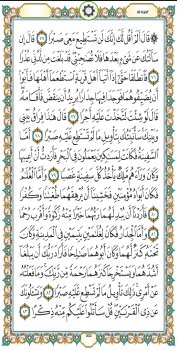 ۞ قَالَ أَلَمْ أَقُل لَّكَ إِنَّكَ لَن تَسْتَطِيعَ مَعِيَ صَبْرًا ٧٥ قَالَ إِن
سَأَلْتُكَ عَن شَيْءٍ بَعْدَهَا فَلَا تُصَٰحِبْنِي قَدْ بَلَغْتَ مِن لَّدُنِّي عُذْرًا
٧٦ فَٱنطَلَقَا حَتَّىٰٓ إِذَآ أَتَيَآ أَهْلَ قَرْيَةٍ ٱسْتَطْعَمَآ أَهْلَهَا فَأَبَوْا۟
أَن يُضَيِّفُوهُمَا فَوَجَدَا فِيهَا جِدَارًا يُرِيدُ أَن يَنقَضَّ فَأَقَامَهُۥ
قَالَ لَوْ شِئْتَ لَتَّخَذْتَ عَلَيْهِ أَجْرًا ٧٧ قَالَ هَٰذَا فِرَاقُ بَيْنِي
وَبَيْنِكَ سَأُنَبِّئُكَ بِتَأْوِيلِ مَا لَمْ تَسْتَطِع عَّلَيْهِ صَبْرًا ٧٨ أَمَّا
ٱلسَّفِينَةُ فَكَانَتْ لِمَسَٰكِينَ يَعْمَلُونَ فِي ٱلْبَحْرِ فَأَرَدتُّ أَنْ أَعِيبَهَا
وَكَانَ وَرَآءَهُم مَّلِكٌ يَأْخُذُ كُلَّ سَفِينَةٍ غَصْبًا ٧٩ وَأَمَّا ٱلْغُلَٰمُ
فَكَانَ أَبَوَاهُ مُؤْمِنَيْنِ فَخَشِينَآ أَن يُرْهِقَهُمَا طُغْيَٰنًا وَكُفْرًا
٨٠ فَأَرَدْنَآ أَن يُبْدِلَهُمَا رَبُّهُمَا خَيْرًا مِّنْهُ زَكَوٰةً وَأَقْرَبَ رُحْمًا
٨١ وَأَمَّا ٱلْجِدَارُ فَكَانَ لِغُلَٰمَيْنِ يَتِيمَيْنِ فِي ٱلْمَدِينَةِ وَكَانَ
تَحْتَهُۥ كَنزٌ لَّهُمَا وَكَانَ أَبُوهُمَا صَٰلِحًا فَأَرَادَ رَبُّكَ أَن يَبْلُغَآ
أَشُدَّهُمَا وَيَسْتَخْرِجَا كَنزَهُمَا رَحْمَةً مِّن رَّبِّكَ وَمَا فَعَلْتُهُۥ
عَنْ أَمْرِي ذَٰلِكَ تَأْوِيلُ مَا لَمْ تَسْطِع عَّلَيْهِ صَبْرًا ٨٢ وَيَسْـَٔلُونَكَ
عَن ذِي ٱلْقَرْنَيْنِ قُلْ سَأَتْلُوا۟ عَلَيْكُم مِّنْهُ ذِكْرًا ٨٣